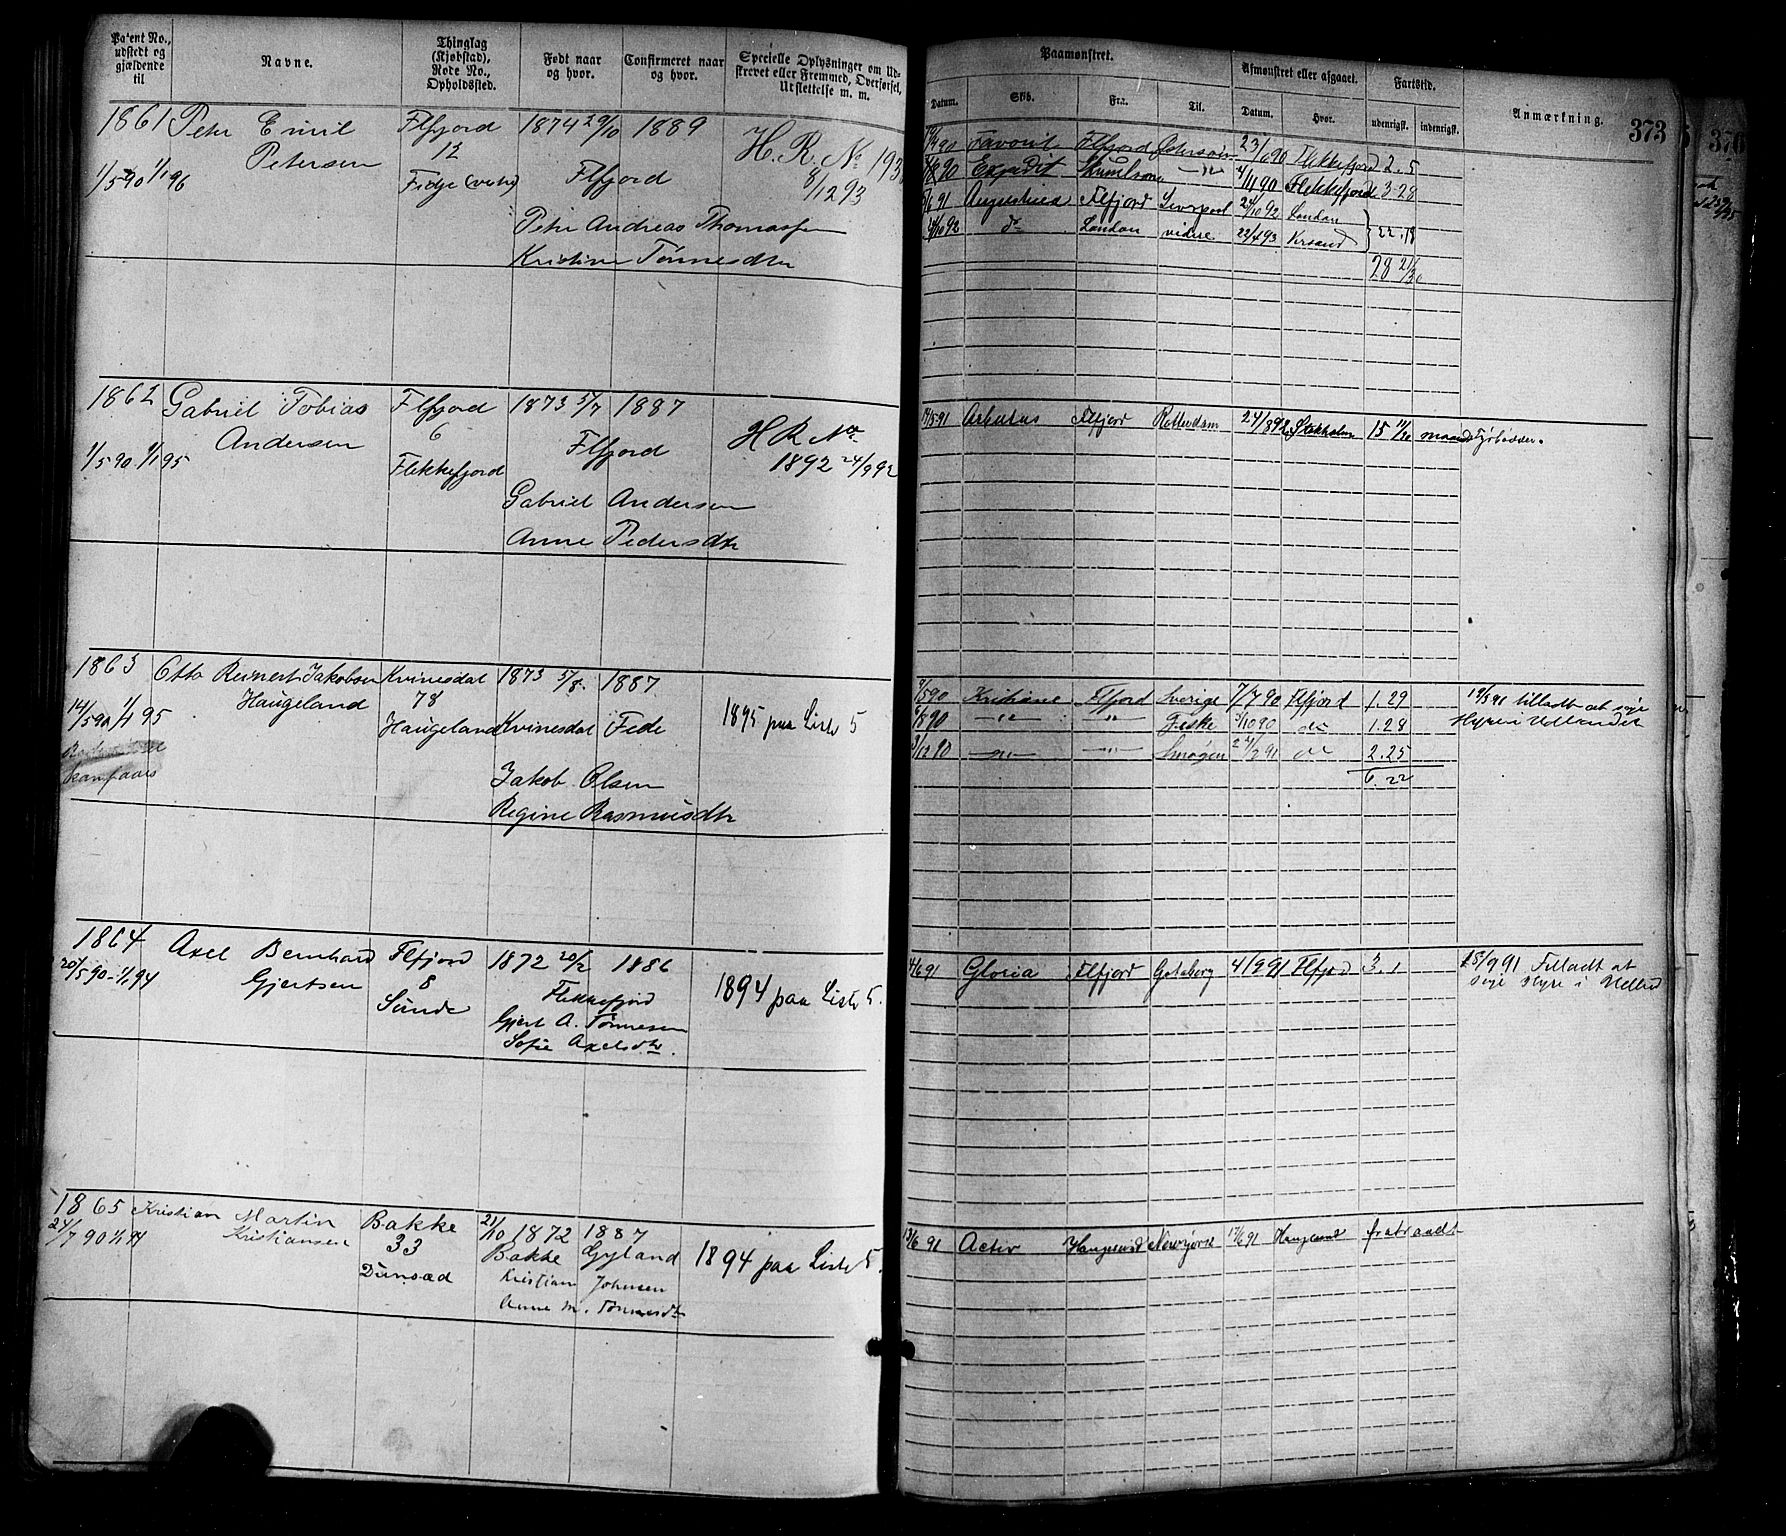 Patent No., udstedt og gjældende til
Navne.
Thinglag (Kjøbstad), Rode No., Opholdssted.
Født naar og hvor.
Confirmeret naar og hvor.
Specielle Oplysninger om Udskrevet eller Fremmed, Overførsel, Udslettelse m. m.
Paamønstret.
Datum.
Skib.
Fra.
Til.
Afmønstret eller afgaaet.
Datum.
Hvor.
Fartstid.
udenrigsk.
indenrigsk.
Anmærkning.
373
376
1861 Peter Emil Flfjord 1874 29/10 1889 H. R. No 193
Petersen 12
1/5 90 1/1 96 Fidje (vestre) Flfjord 8/12 93
Peter Andreas Thomassen
Kristine Tønnesdtr
90 Favorit Flfjord 23/6 90 Flekkefjord 2.5
90 Expedit 4/11 90 Flekkefjord 3.28
6 91 Augustinia Flfjord Liverpool 24/10 92 London
24/10 92 do London videre 22/4 93 Krsand 22.18
28 21/30
1862 Gabriel Tobias Flfjord 1873 5/7 1887
Andersen 6 H R No
1/5 90 1/1 95 Flekkefjord Flfjord 1892 24/9 92
Gabriel Andersen
Anne Pedersdtr
14/5 91 Arbutus Flfjord Rotterdam 24/8 92 Stokholm 15 11/30 maaneds
1863 Otto Reinert Jakobsen Kvinesdal 1873 5/8 1887
Haugeland 78
14/5 90 1/1 95 Haugeland Kvinesdal Fede 1895 paa Liste 5
Jakob Olsen
Regine Rasmusdtr
5 90 Kristiane Flfjord Sverige 7/7 90 Flfjord 1.29 19/3 91 tilladt at søge
6/8 90 —"— —"— Fiske 3/10 90 do 1.28 Hyre i Udlandet
3/12 90 —"— —"— Smøgen 24/2 91 do 2.25
6.22
1864 Axel Bernhard Flfjord 1872 20/2 1886
20/5 90 - 1/1 94 Gjertsen 8 Flekkefjord 1894 paa Liste 5.
Sunde Gjert A. Tønnesen
Sofie Axelsdtr.
4/6 91 Gloria Flfjord Gøteborg 4/9 91 Flfjrd 3.1 15/9 91 Tilladt at
søge Hyre i Udland
1865 Kristian Martin Bakke 21/10 1872 1887
24/7 90 1/1 94 Kristiansen 33 Bakke Gyland 1894 paa Liste 5.
Dunsæd Kristian Johnsen
Anne M. Tønnesdtr
13/6 91 Activ Haugesund Newyork 17/6 91 Haugesund fratraadt